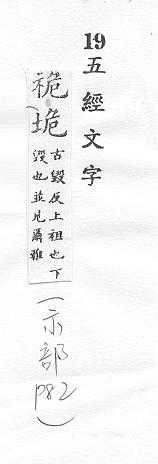 19 五經文字
祪垝
古毀反上祖也下
毀也並見爾雅
(示部 P82)